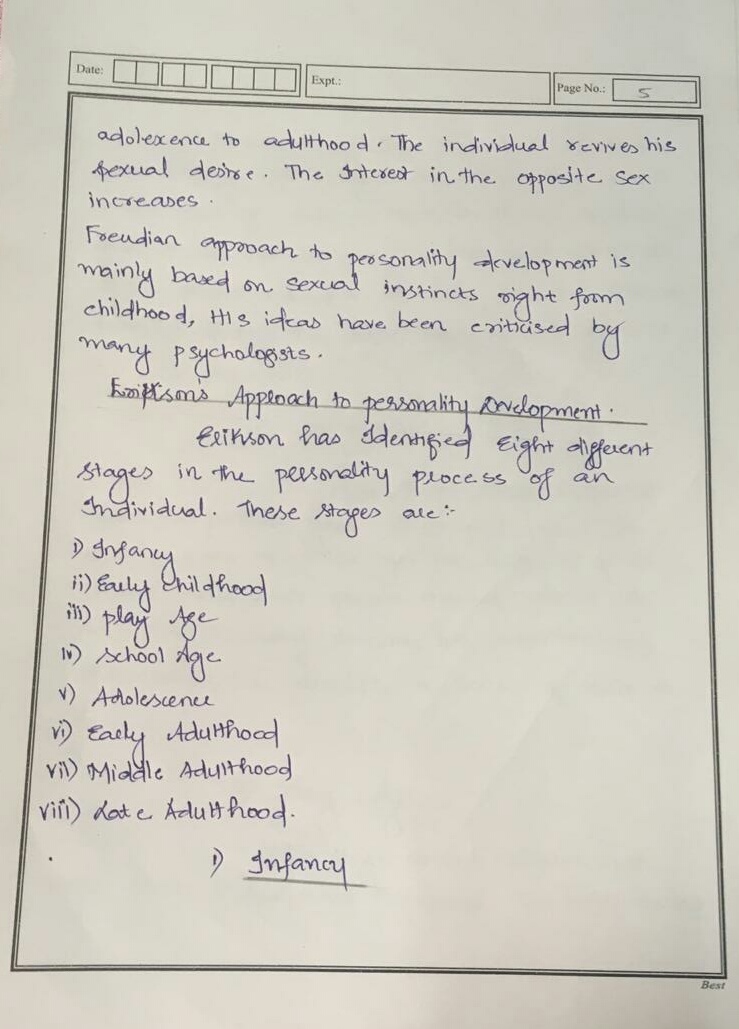 Date:
Expt.:
Page No.: 5
adolexence to adulthood. The individual revives his
sexual desire. The Interest in the opposite sex
increases.
Freudian approach to personality development is
mainly based on sexual instincts right from
childhood, His ideas have been criticised by
many psychologists.
Erikson's Approach to personality Development.
Erikson has Identified Eight different
stages in the personality process of an
Individual. These stages are:-
i) Infancy
ii) Early childhood
iii) play Age
iv) school Age
v) Adolescence
vi) Early Adulthood
vii) Middle Adulthood
viii) Late Adulthood.
i) Infancy
Best